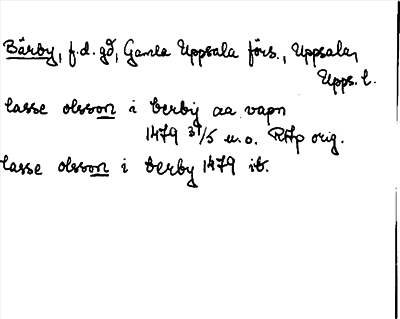 Bärby, f.d. gd, Gamla Uppsala förs., Uppsala,
Upps. l.
lasse olsson i berby aa vapn
1479 31/5 u.o. RAp orig.
lasse olsson i berby 1479 ib.